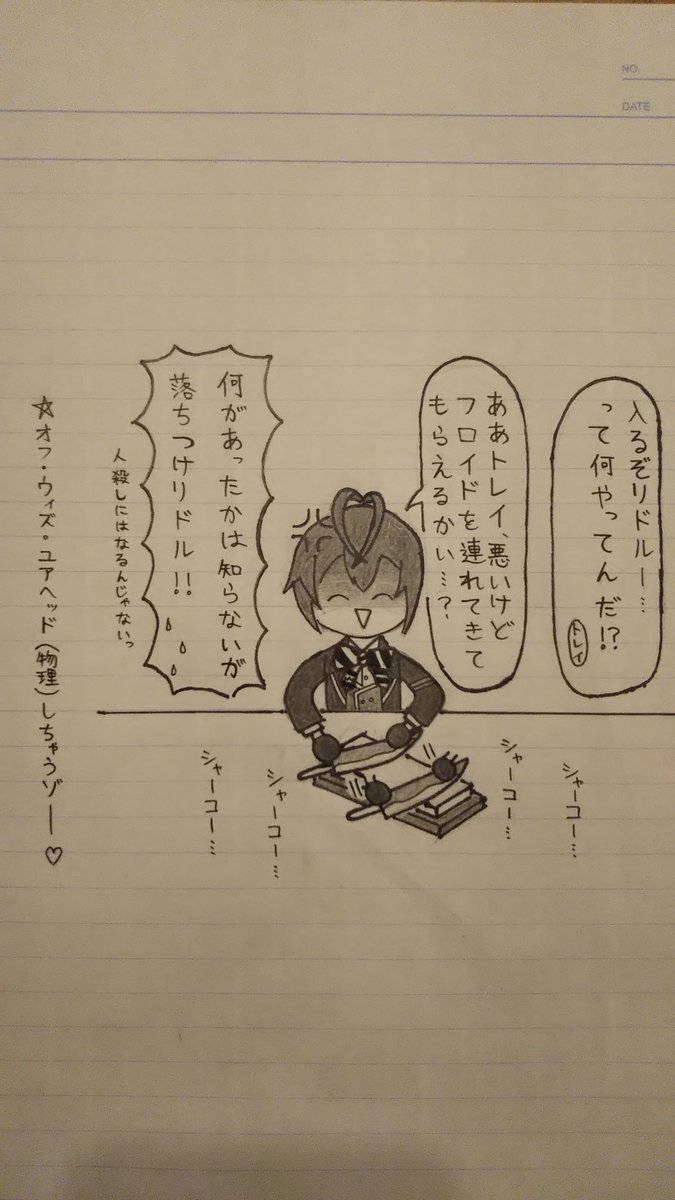 NO.
DATE
入るぞリドルー…
って何やってんだ!?
トレイ
ああトレイ、悪いけど
フロイドを連れてきて
もらえるかい…?
何があったかは知らないが
落ちつけリドル!!
人殺しにはなるんじゃないっ
☆オフ・ウィズ・ユアヘッド(物理)しちゃうゾー♡
シャーコー…
シャーコー…
シャーコー…
シャーコー…